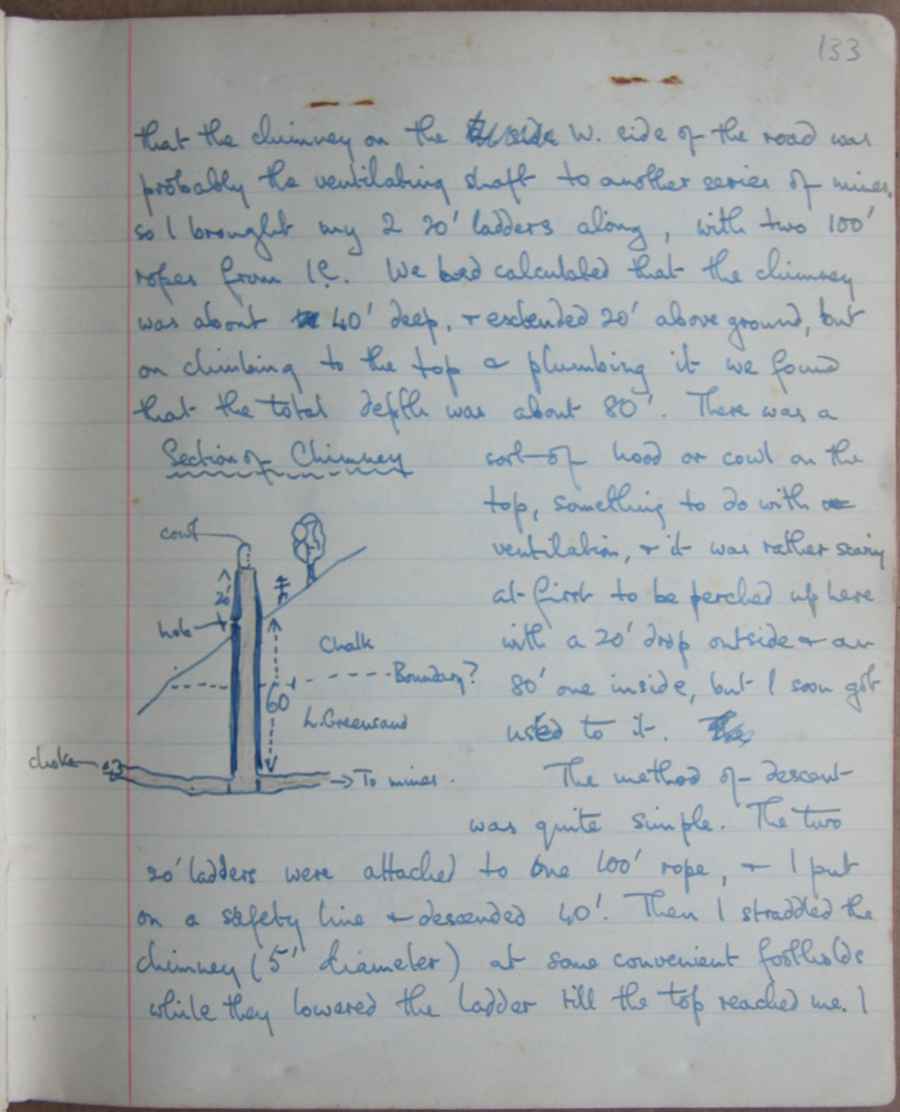 133
that the chimney on the W. side of the road was
probably the ventilating shaft to another series of mines.
so I brought my 2 20' ladders along, with two 100'
ropes from I.C. We had calculated that the chimney
was about 40' deep, + extended 20' above ground, but
on climbing to the top & plumbing it we found
that the total depth was about 80'. There was a
Section of Chimney
sort of hood or cowl on the
top, something to do with
ventilation, + it was rather scary
at first to be perched up here
with a 20' drop outside + an
80' one inside, but I soon got
used to it.
cowl
20'
hole
Chalk
Boundary?
60'
L. Greensand
choke
→ To mines.
The method of descent
was quite simple. The two
20' ladders were attached to one 100' rope, + I put
on a safety line + descended 40'. Then I straddled the
chimney (5' diameter) at some convenient footholds
while they lowered the ladder till the top reached me. I